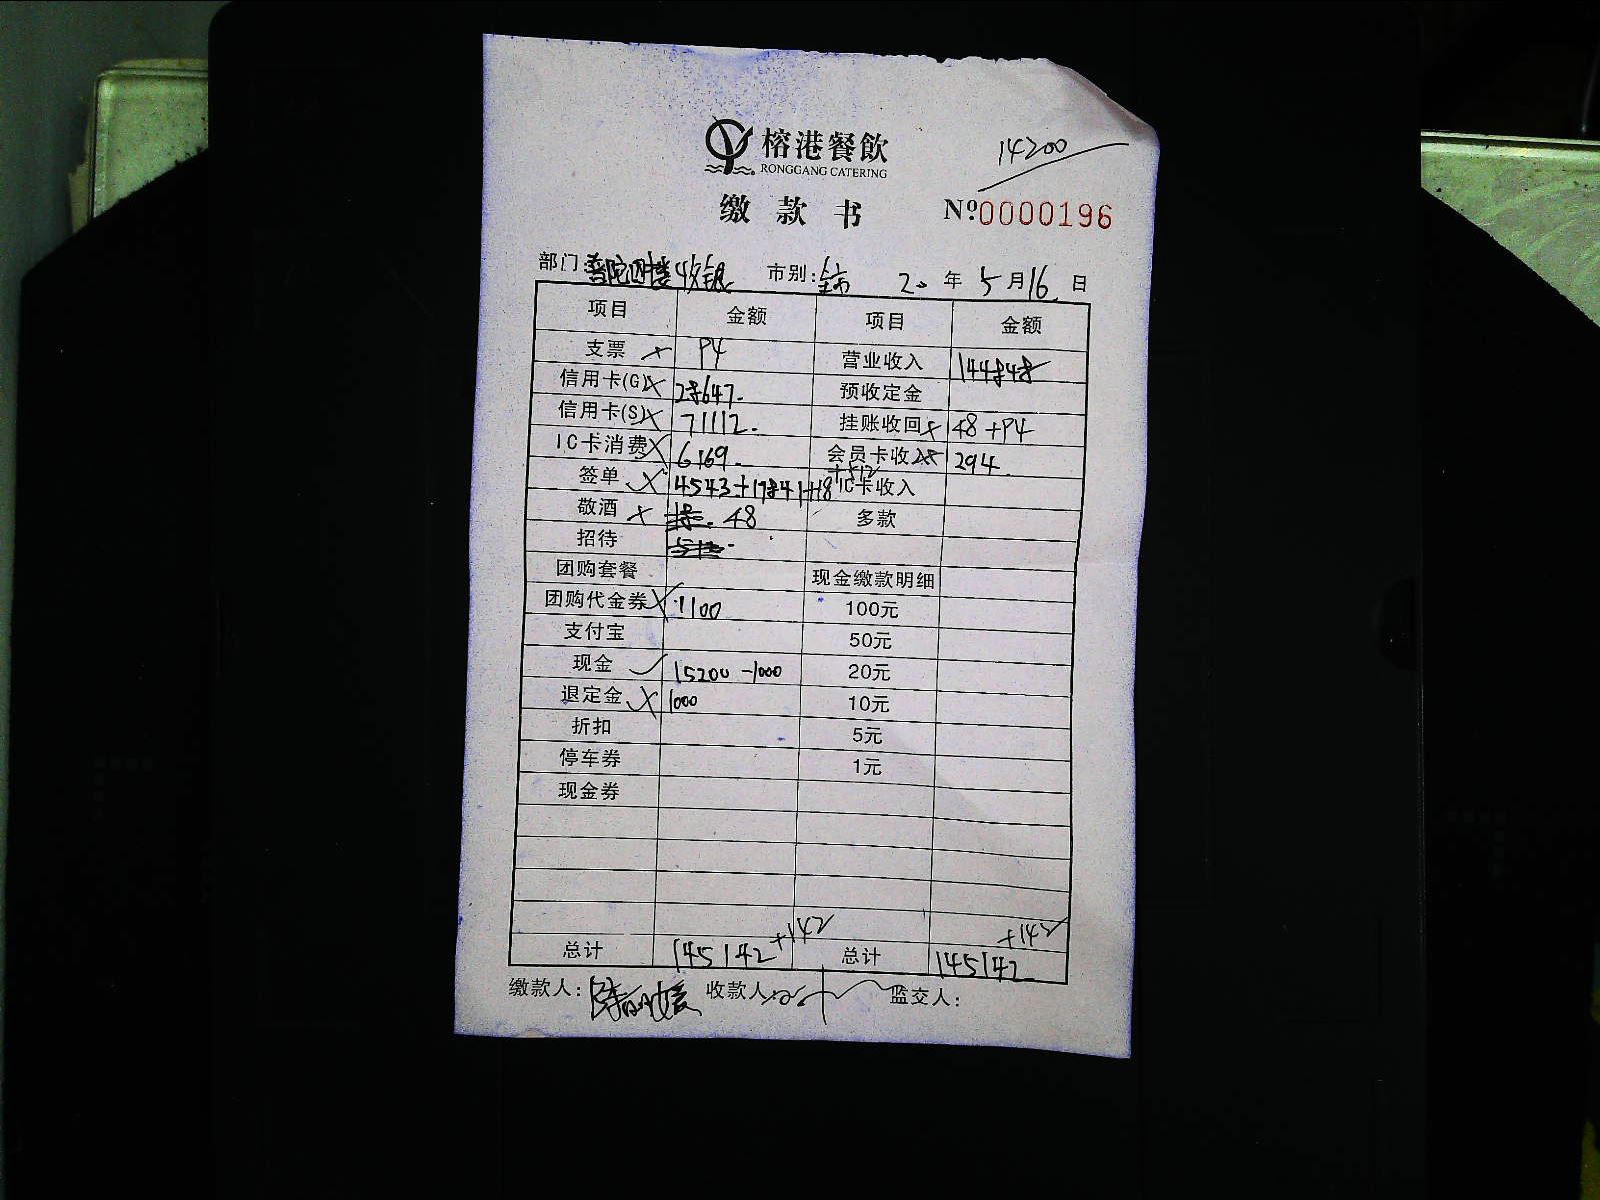 榕港餐飲
RONGGANG CATERING
14200
缴款书
Nº0000196
部门:普陀四楼收银 市别:全市 20年5月16日
项目 金额 项目 金额
支票 × P4 营业收入 144848
信用卡(G)× 28647. 预收定金
信用卡(S)× 71112. 挂账收回× 48+P4
IC卡消费× 6169. 会员卡收 294.
签单 × 4543+17841+18+512 IC卡收入
敬酒 × 48 多款
招待
团购套餐 现金缴款明细
团购代金券× 1100 100元
支付宝 50元
现金 ✓ 15200-1000 20元
退定金 × 1000 10元
折扣 5元
停车券 1元
现金券
总计 145142+142 总计 145142+142
缴款人: 收款人: 监交人: